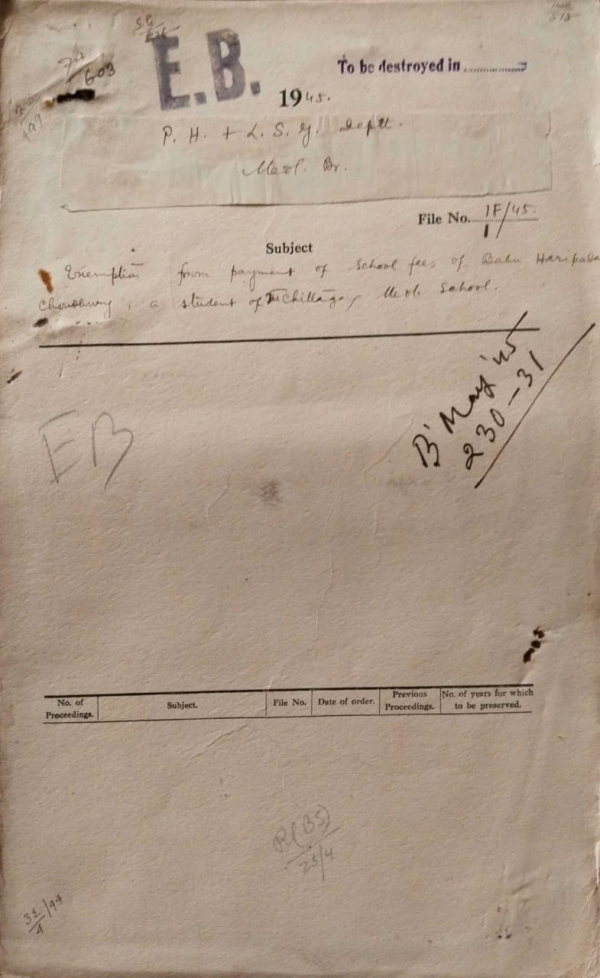 E.B.
To be destroyed in
603
1945.
P. H. + L. S. G. Deptt.
Medl. Br.
File No. 1F/45.
1
Subject
Exemption from payment of School fees of Babu Haripada
Chowdhury, a student of Chittagong Medl. School.
B' May '45
230-31
EB
No. of Proceedings. Subject. File No. Date of order. Previous Proceedings. No. of years for which to be preserved.
25/4